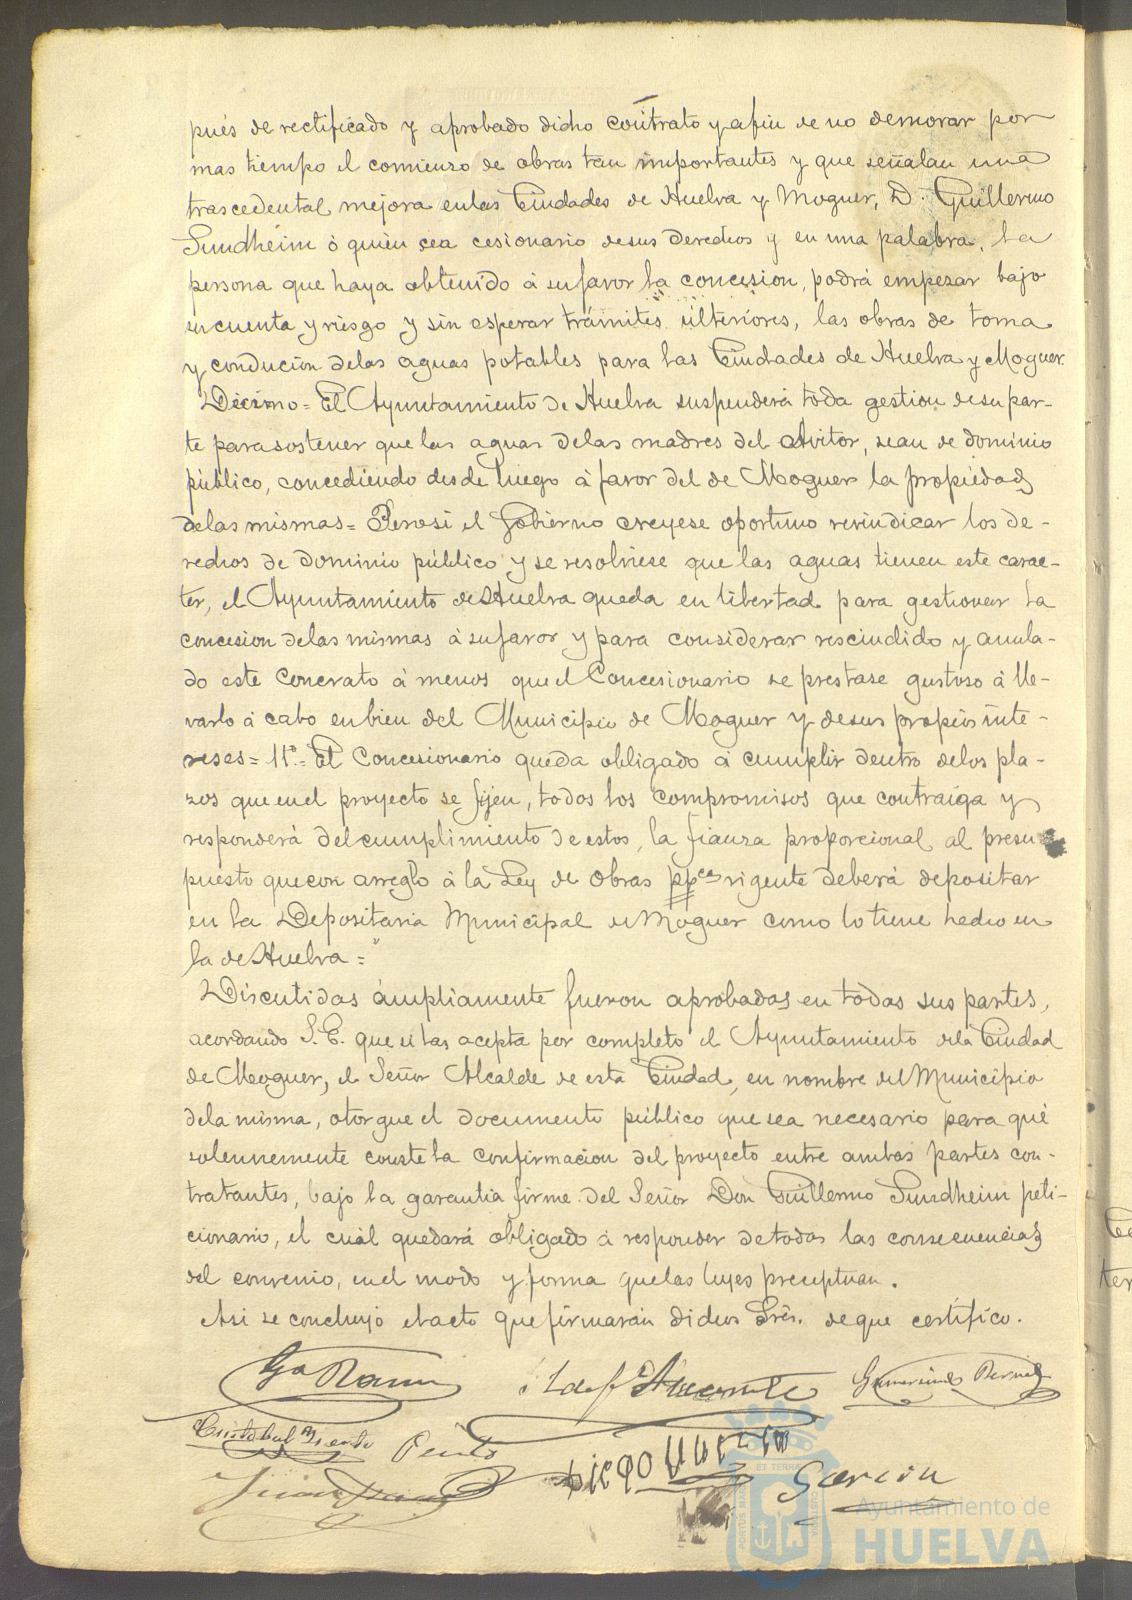 pués de rectificado y aprobado dicho cóntrato y afin de no demorar por
mas tiempo el comienzo de obras tan importantes y que señalan una
trascedental mejora en las Ciudades de Huelva y Moguer, D. Guillermo
Sundheim ó quien sea cesionario de sus derechos y en una palabra, la
persona que haya obtenido á su favor la concesion, podrá empezar bajo
su cuenta y riesgo y sin esperar trámites ulteriores, las obras de toma
y condución de las aguas potables para las Ciudades de Huelva y Moguer.
Décimo = El Ayuntamiento de Huelva suspenderá toda gestion de su par-
te para sostener que las aguas de las madres del Avitor, sean de dominio
público, concediendo desde luego á favor del de Moguer la propiedad
de las mismas = Pero si el Gobierno creyese oportuno reivindicar los de-
rechos de dominio público y se resolviese que las aguas tienen este carac-
ter, el Ayuntamiento de Huelva queda en libertad para gestionar la
concesion de las mismas á su favor y para considerar rescindido y anula-
do este concrato á menos que el Concesionario se prestase gustoso á lle-
varlo á cabo en bien del Municipio de Moguer y de sus propios inte-
reses = 11º = El Concesionario queda obligado á cumplir dentro de los pla-
zos que en el proyecto se fijen, todos los compromisos que contraiga y
responderá del cumplimiento de estos, la fianza proporcional al presu-
puesto que con arreglo á la Ley de Obras ppcas vigente deberá depositar
en la Depositaria Municipal de Moguer como lo tiene hecho en
la de Huelva = "
Discutidas ámpliamente fueron aprobadas en todas sus partes,
acordando S. E. que si las acepta por completo el Ayuntamiento de la Ciudad
de Moguer, el Señor Alcalde de esta Ciudad, en nombre del Municipio
de la misma, otorgue el documento público que sea necesario para que
solennemente conste la confirmacion del proyecto entre ambas partes con-
tratantes, bajo la garantia firme del Señor Don Guillermo Sundheim peti-
cionario, el cuál quedará obligado á responder de todas las consecuencias
del convenio, en el modo y forma que las leyes preceptuan.
Asi se concluyó el acto que firmarán dichos Sres. de que certifico.
Gumersindo Bernal
Garcia
Ayuntamiento de
HUELVA